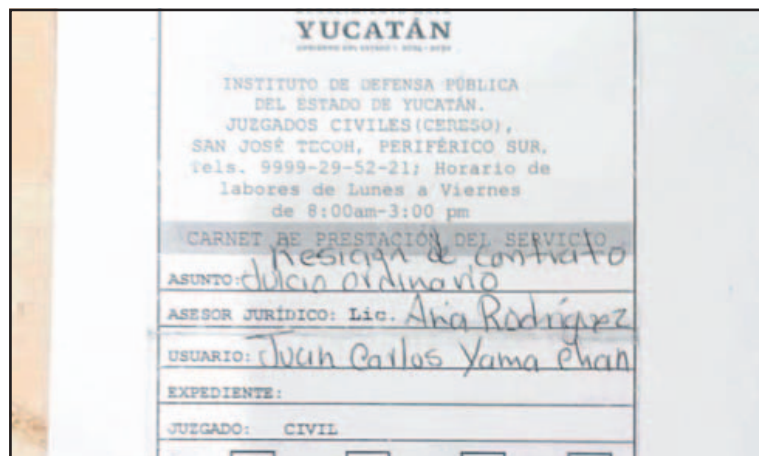 YUCATÁN
INSTITUTO DE DEFENSA PÚBLICA
DEL ESTADO DE YUCATÁN.
JUZGADOS CIVILES(CERESO),
SAN JOSÉ TECOH, PERIFÉRICO SUR.
Tels. 9999-29-52-21; Horario de
labores de Lunes a Viernes
de 8:00am-3:00 pm
CARNET DE PRESTACIÓN DEL SERVICIO
Resición de contrato
ASUNTO: Juicio ordinario
ASESOR JURÍDICO: Lic. Ana Rodríguez
USUARIO: Juan Carlos Yama Chan
EXPEDIENTE:
JUZGADO: CIVIL